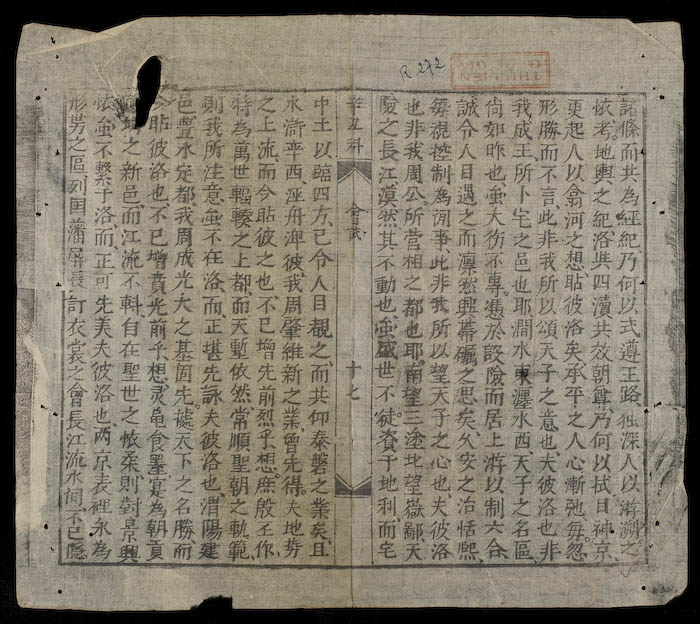 R.272
THƯ VIỆN
諸條而共為經紀乃何以式遵王路独深人以溯洄之
依考地輿之紀洛與四瀆共效朝尊乃何以拭目神京
更起人以翕河之想瞻彼洛矣承平之人心漸弛毎忽
形勝而不言此非我所以頌天子之意也夫彼洛也非
我成王所卜宅之邑也耶澗水東瀍水西天子之名區
尚如昨也虽大伤不專憑於設險而居上游以制六合
誠令人日遇之而凜然興幕礪之思矣久安之治恬熙
毎視控制為閒事此非我所以望天子之心也夫彼洛
也非我周公所营相之都也耶南望三塗北望嶽鄙天
險之長江漠然其不動也虽盛世不徒賚于地利而宅
辛丑科
會試
十七
中土以臨四方已令人目覩之而共仰泰磐之業矣且
水滸平西涇舟渒彼我周肇維新之業曾先得大地势
之上流而今瞻彼之也不已增先前烈乎想庶殷丕作
特為萬世輻輳之上都而天塹依然常順聖朝之軌範
則我所注意虽不在洛而正堪先詠夫彼洛也渭陽建
邑豐水定都我周成光大之基固先㨿天下之名勝而
今瞻彼洛也不已增賁光前乎想灵亀食墨寔為朝貢
之新邑而江流不斜自在聖世之怀柔則對景興
怀虽不繫于洛而正可先美夫彼洛也两京表裡永為
形势之區列囯藩屏長訂衣裳之會長江流水间不已隐